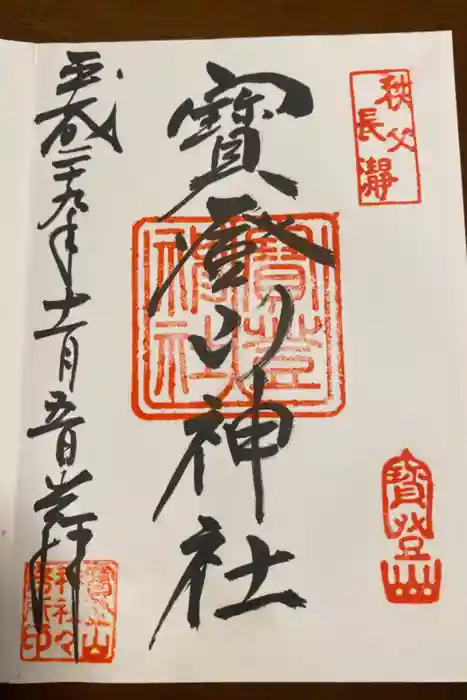 秩父
長瀞
寶登山
寶登山神社
寶登山
神社
平成二十九年十一月五日拝
寶登山
神社々
務所印